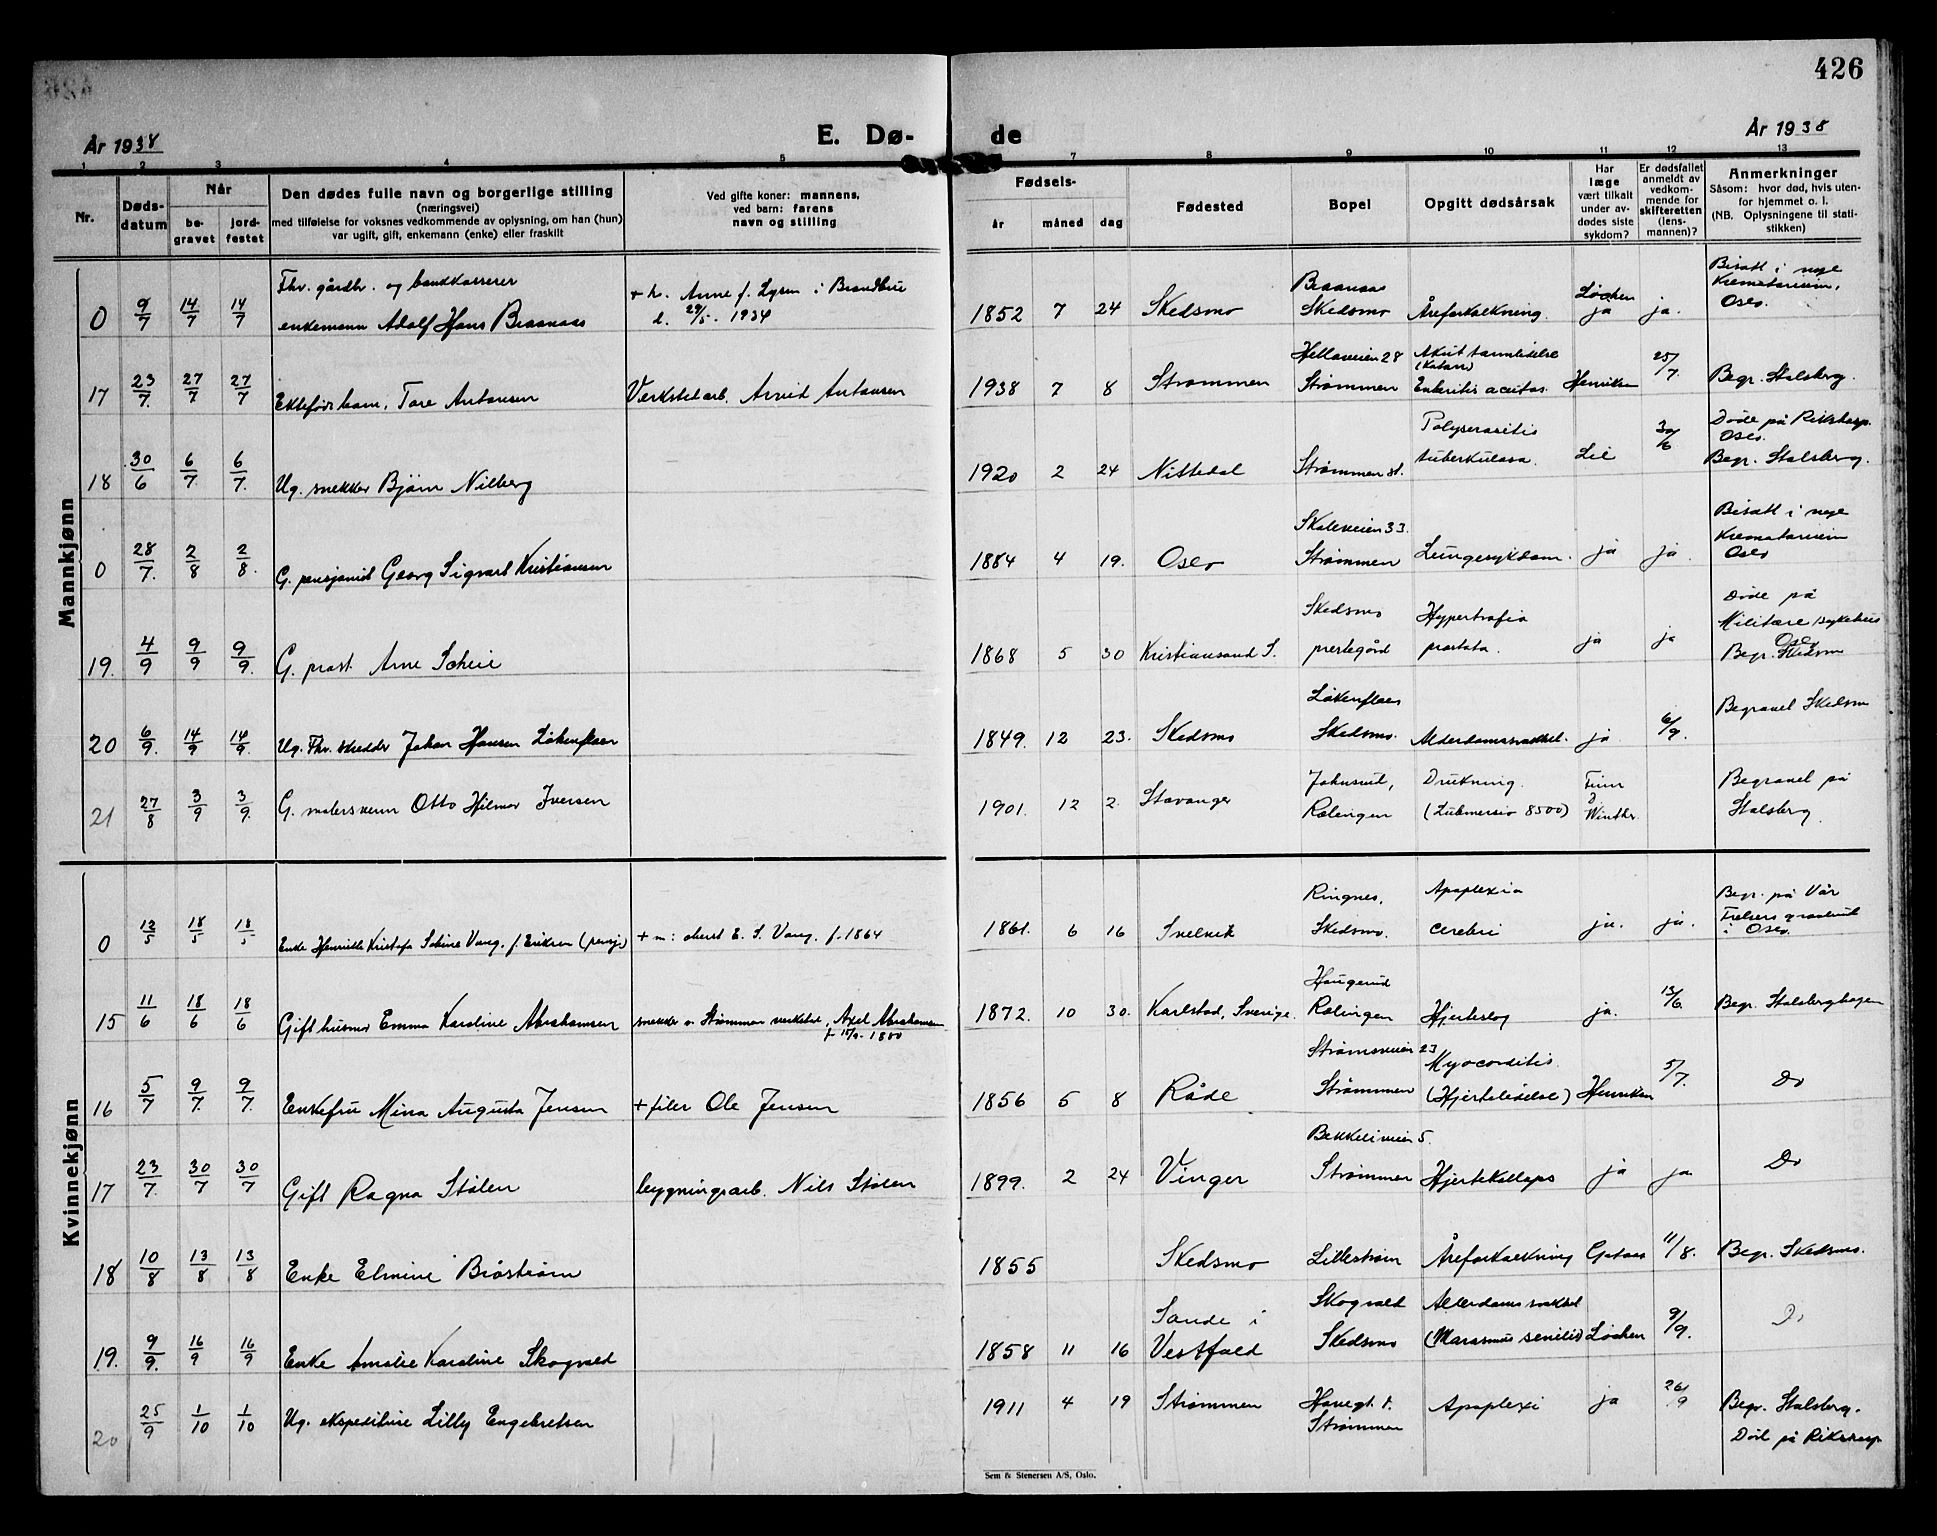 426
År 1938
E. Dø-
de
År 1938
1 2 3 4 5 7 8 9 10 11 12 13
Nr.
Døds-
datum
Når
be-
gravet
jord-
festet
Den dødes fulle navn og borgerlige stilling
(næringsvei)
med tilføielse for voksnes vedkommende av oplysning, om han (hun)
var ugift, gift, enkemann (enke) eller fraskilt
Ved gifte koner: mannens,
ved barn: farens
navn og stilling
Fødsels-
år måned dag
Fødested
Bopel
Opgitt dødsårsak
Har
læge
vært tilkalt
under av-
dødes siste
sykdom?
Er dødsfallet
anmeldt av
vedkom-
mende for
skifteretten
(lens-
mannen)?
Anmerkninger
Såsom: hvor død, hvis uten-
for hjemmet o. l.
(NB. Oplysningene til stati-
stikken)
Mannkjønn
0 9/7 14/7 14/7 Fhv. gårdbr. og bankkasserer
enkemann Adolf Hans Braanaas
+ h. Anne f. Lysen i
d. 29/5 - 1934
1852 7 24 Skedsmo
Braanaas
Skedsmo
Åreforkalkning.
Løchen
ja
ja.
Bisatt i nye
Krematorium,
Oslo.
17 23/7. 27/7 27/7 Ektefødt barn, Tore Antonsen
Verkstedarb. Arvid Antonsen
1938 7 8 Strømmen
Hellaveien 28
Strømmen
Akut tarmlidelse
(Katarr)
Enteritis acutas.
Henriksen
25/7.
Begr. Stalsberg.
18 30/6 6/7. 6/7. Ug. snekker Bjørn Nilberg
1920 2 24 Nittedal
Strømmen st.
Polyserositis
tuberkulosa.
Lie
30/6
Døde på Rikshosp.
Oslo.
Begr. Stalsberg.
0 28/7. 2/8 2/8. G. pensjonist Georg Sigvart Kristiansen
1884 4 19. Oslo
Skoleveien 33.
Strømmen
Lungesykdom.
ja
ja
Bisatt i nye
Krematorium
Oslo
19. 4/9 9/9 9/9. G. prost Arne Scheie
1868 5 30 Kristiansand S.
Skedsmo
prestegård
Hypertrofia
prostata.
ja
ja
Døde på
Militære sykehus
Oslo
Begr. Skedsm
20 6/9. 14/9. 14/9. Ug. Fhv. skredder Johan Hansen Løkenflaen
1849. 12 23. Skedsmo
Løkenflaen
Skedsmo.
Alderdomssvakhet.
ja
6/9.
Begravet Skedsm
21 27/8 3/9 3/9. G. malersvenn Otto Hilmar Iversen
1901. 12 2. Stavanger
Johnsrud,
Rælingen
Drukning.
(Submersio 8500)
Finn
Winther.
Begravet på
Stalsberg.
Kvinnekjønn
0 12/5 18/5 18/5 Enke Henriette Kristofa Sofine Vang. f. Eriksen (pensj.)
+ m: oberst E. S. Vang. f. 1864
1861. 6 16 Svelvik
Ringnes,
Skedsmo.
Apoplexia
cerebri
ja.
ja.
Begr. på Vår
Frelsers gravlund
i Oslo.
15 11/6 18/6 18/6 Gift husmor Emma Karoline Abrahamsen
snekker v. Strømmen verksted, Axel Abrahamsen
1872. 10 30. Karlstad, Sverige.
Haugerud
Rælingen
Hjerteslag
ja.
13/6.
Begr. Stalsberghagen
16 5/7 9/7. 9/7. Enkefru Mina Augusta Jensen
+ filer Ole Jensen
1856 5 8 Råde
Strømsveien 23
Strømmen
Myocorditis.
(Hjertelidelse)
Henriksen
5/7.
Do
17 23/7. 30/7 30/7 Gift Ragna Stølen
bygningsarb. Nils Stølen
1899. 2 24 Vinger
Bekkeliveien 5.
Strømmen
Hjertekollaps
ja
ja
Do
18 10/8 13/8 13/8 Enke Elmine Brøstrøm
1855 Skedsmo
Lillestrøm
Åreforkalkning
Gotaas
11/8.
Begr. Skedsmo.
19. 9/9. 16/9 16/9 Enke Amalie Karoline Skogvold
1858 11 16
Sande i
Vestfold
Skogvold
Skedsmo
Alderdomssvakhet
(Marasmus senilis)
Løchen
9/9.
Do
20 25/9 1/10 1/10 Ug. ekspeditrise Lilly Engebretsen
1911 4 19 Strømmen
Strømmen
Apoplexi
ja
26/9
Begr. Stalsberg.
Død på Rikshosp.
Sem & Stenersen A/S, Oslo.